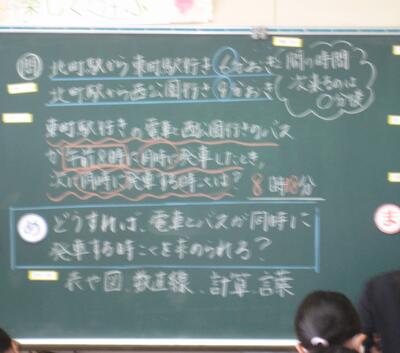 問 北町駅から東町駅行き 6分おき
北町駅から西公園行き 9分おき
間の時間
次来るのは
○分後
東町駅行きの電車と西公園行きのバス
が午前8時に同時に発車したとき、
次に同時に発車する時こくは? 8時18分
め どうすれば、電車とバスが同時に
発車する時こくを求められる?
ま
表や図、数直線、計算、言葉